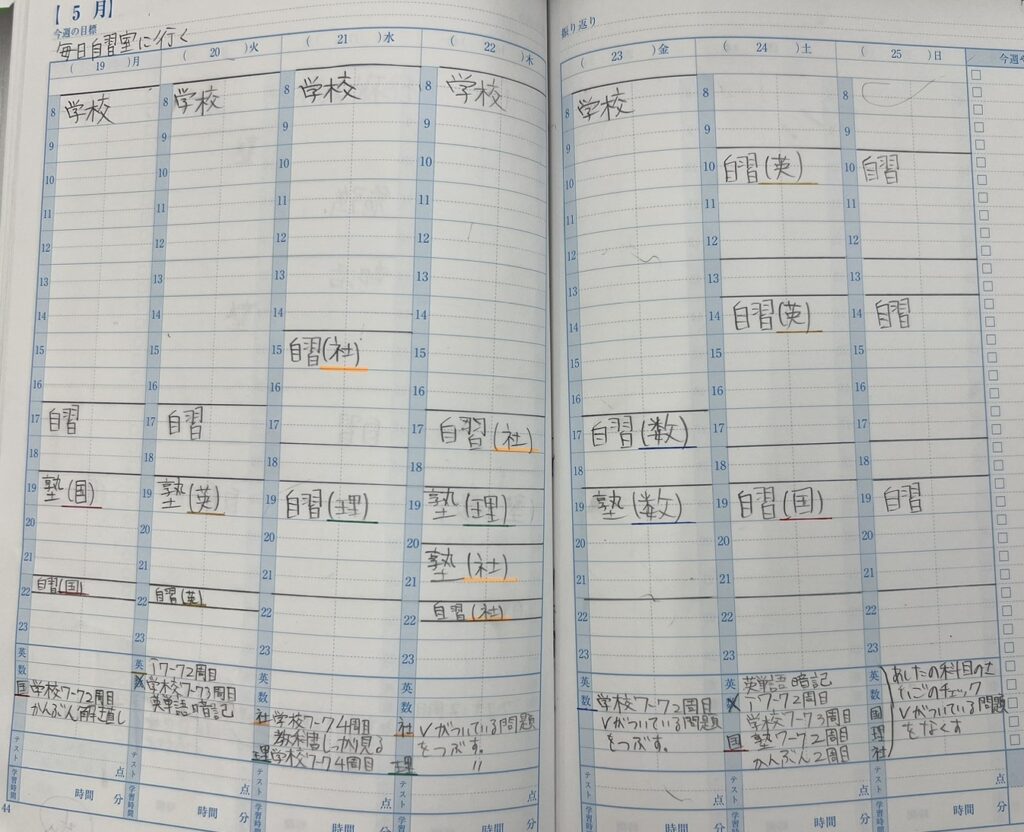 【5月】
今週の目標
毎日自習室に行く
振り返り
(19)月
(20)火
(21)水
(22)木
(23)金
(24)土
(25)日
今週や
8 学校
9
10
11
12
13
14
15
16
17 自習
18
19 塾(国)
20
21
22 自習(国)
23
英
数
国 学校ワーク2周目
かんぶん解き直し
テスト 点
学習時間 時間 分
8 学校
9
10
11
12
13
14
15
16
17 自習
18
19 塾(英)
20
21
22 自習(英)
23
英 iワーク2周目
学校ワーク3周目
英単語暗記
テスト 点
学習時間 時間 分
8 学校
9
10
11
12
13
14
15 自習(社)
16
17
18
19 自習(理)
20
21
22
23
社 学校ワーク4周目
教科書しっかり見る
理 学校ワーク4周目
テスト 点
学習時間 時間 分
8 学校
9
10
11
12
13
14
15
16
17 自習(社)
18
19 塾(理)
20
塾(社)
21
22 自習(社)
23
英
数
社 Vがついている問題
をつぶす。
理 〃
テスト 点
学習時間 時間 分
8 学校
9
10
11
12
13
14
15
16
17 自習(数)
18
19 塾(数)
20
21
22
23
英
数 学校ワーク2周目
Vがついている問題
をつぶす。
テスト 点
学習時間 時間 分
8
9
10 自習(英)
11
12
13
14 自習(英)
15
16
17
18
19 自習(国)
20
21
22
23
英 英単語暗記
iワーク2周目
学校ワーク3周目
国 塾ワーク2周目
かんぶん2周目
テスト 点
学習時間 時間 分
8
9
10 自習
11
12
13
14 自習
15
16
17
18
19 自習
20
21
22
23
英
数
国
理
社
あしたの科目のさ
いごのチェック
Vがついている問題
をなくす
テスト 点
学習時間 時間 分
44